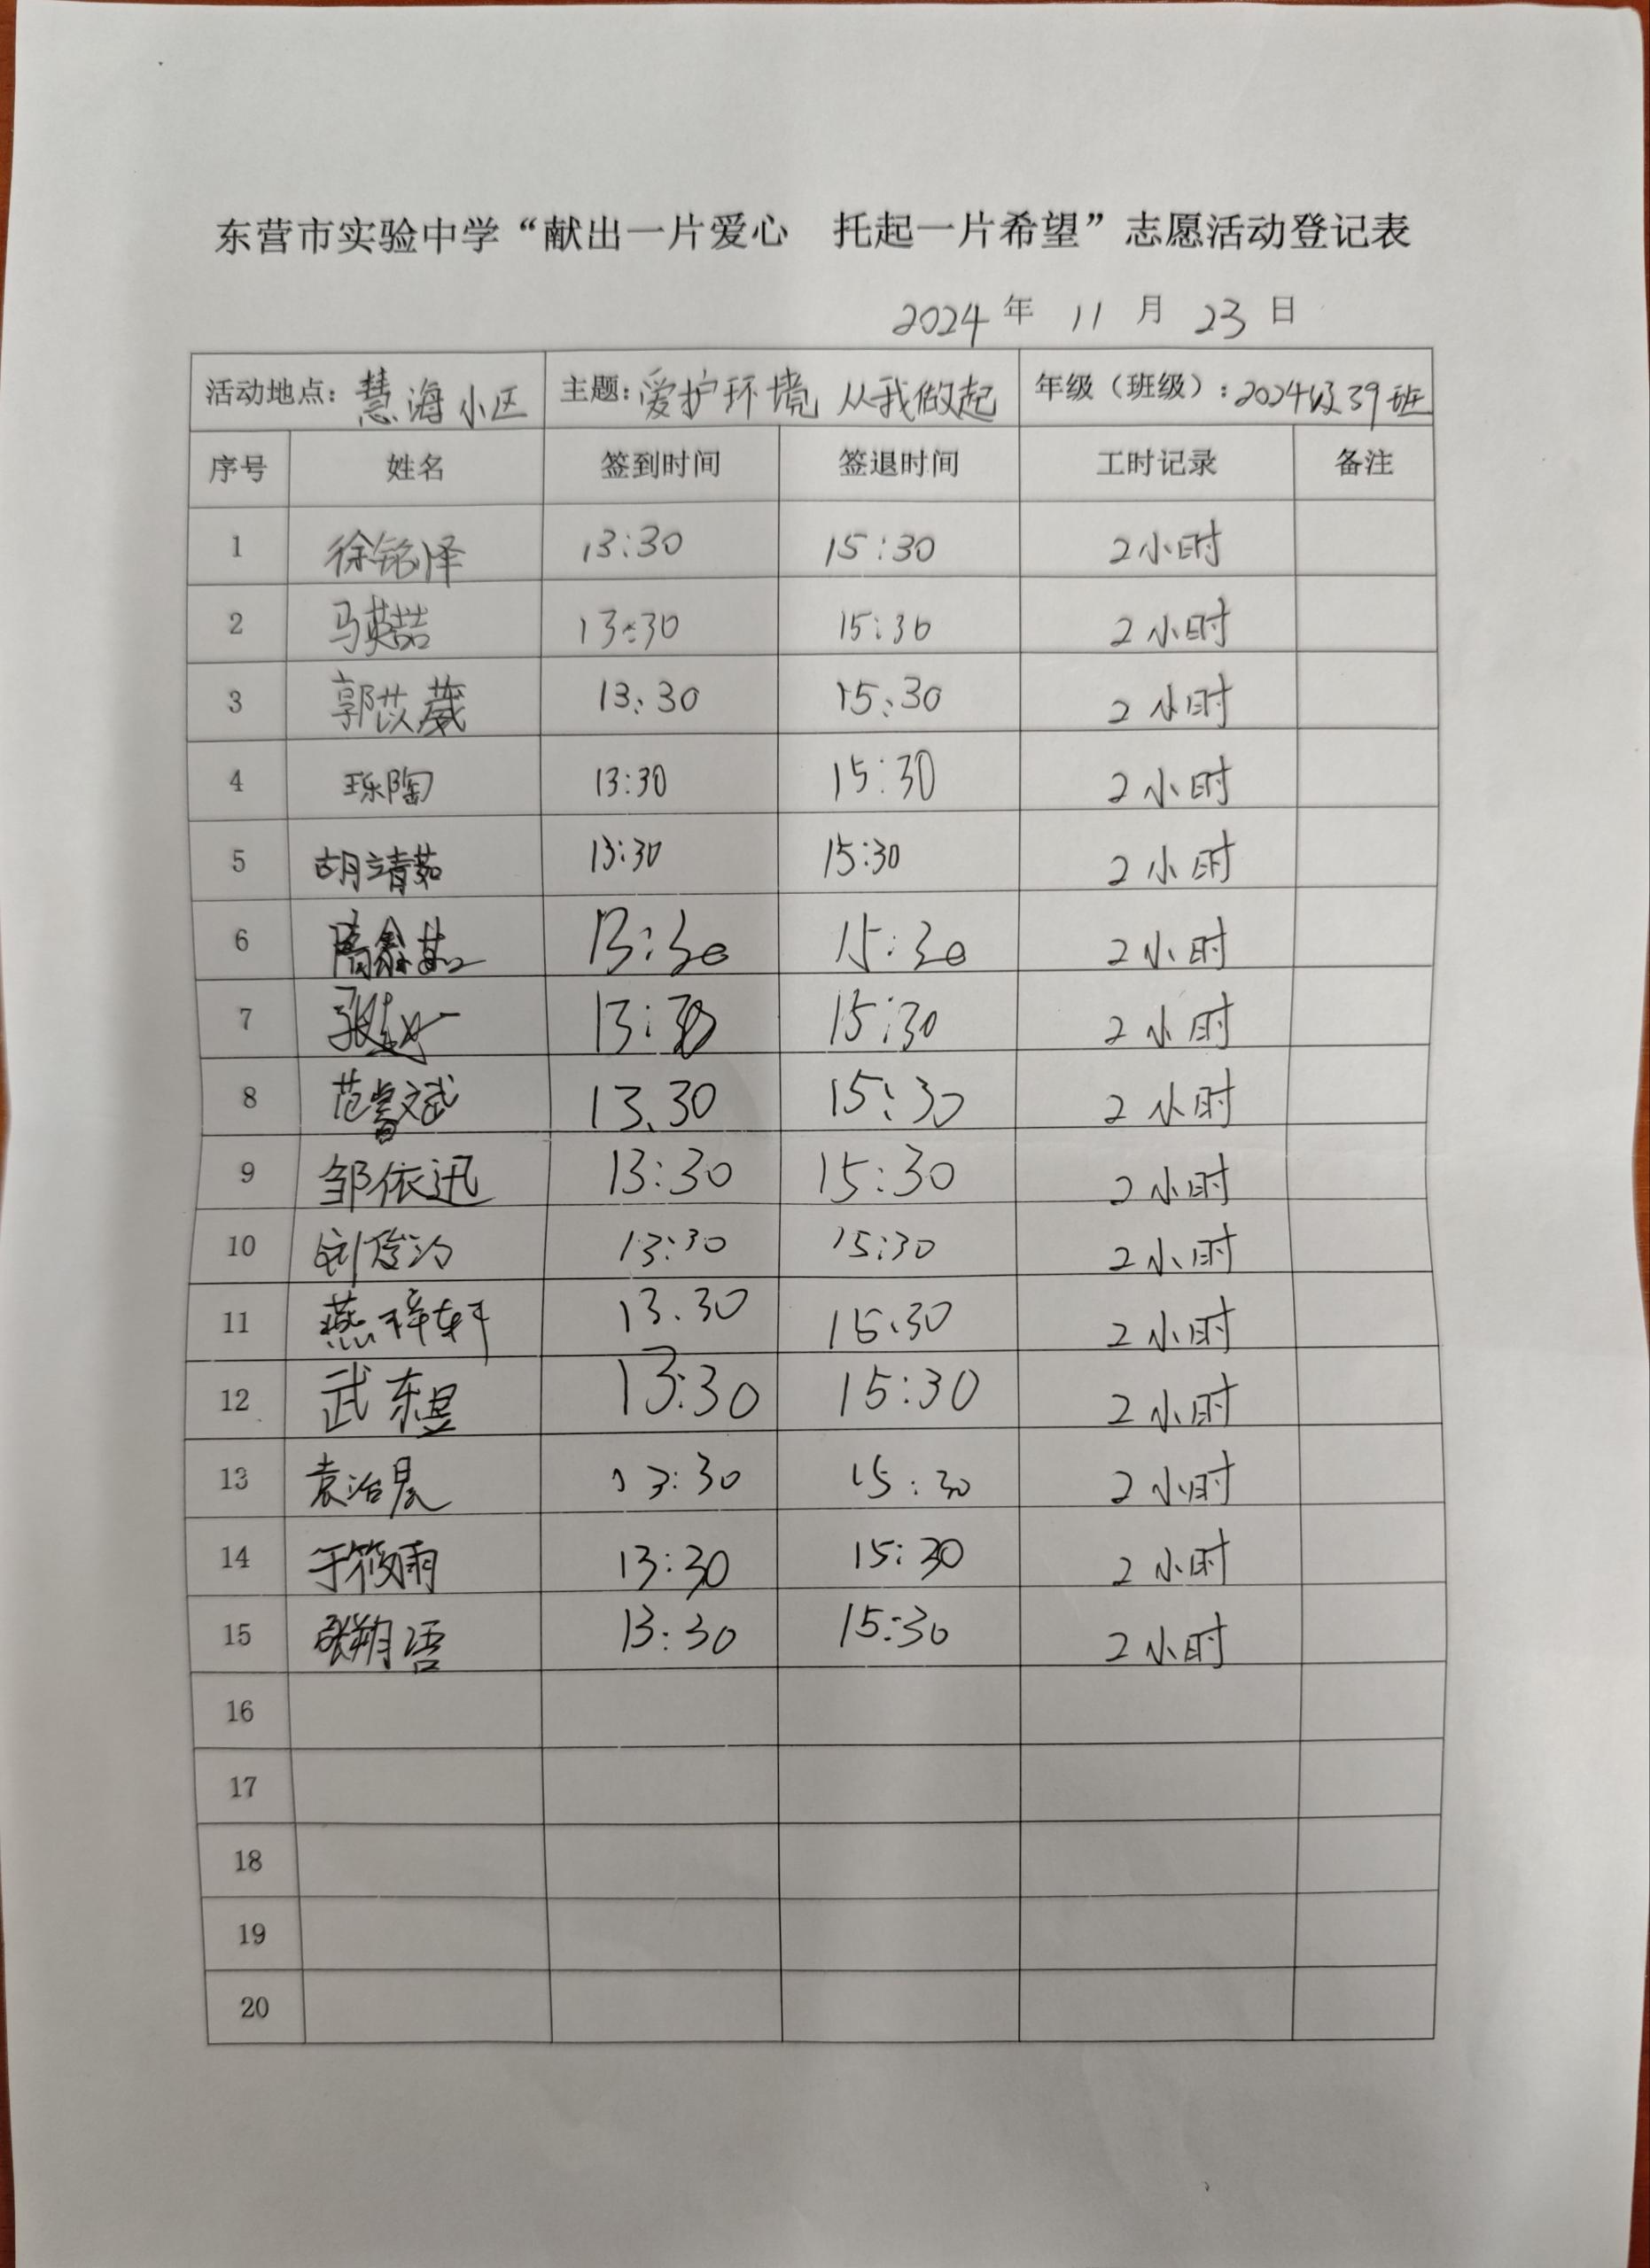 东营市实验中学“献出一片爱心 托起一片希望”志愿活动登记表
2024 年 11 月 23 日
活动地点：慧海小区 主题：爱护环境 从我做起 年级（班级）：2024级39班
序号 姓名 签到时间 签退时间 工时记录 备注
1 徐铭泽 13:30 15:30 2小时
2 马英喆 13:30 15:30 2小时
3 郭苡葳 13:30 15:30 2小时
4 13:30 15:30 2小时
5 胡靖茹 13:30 15:30 2小时
6 13:30 15:30 2小时
7 13:30 15:30 2小时
8 13.30 15:30 2小时
9 邹依迅 13:30 15:30 2小时
10 13:30 15:30 2小时
11 燕梓轩 13.30 15.30 2小时
12 武东昱 13:30 15:30 2小时
13 袁治晨 13:30 15:30 2小时
14 于筱雨 13:30 15:30 2小时
15 张朔语 13:30 15:30 2小时
16
17
18
19
20